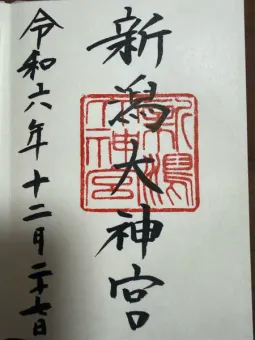 新潟大神宮
新潟大神宮
令和六年十二月二十七日